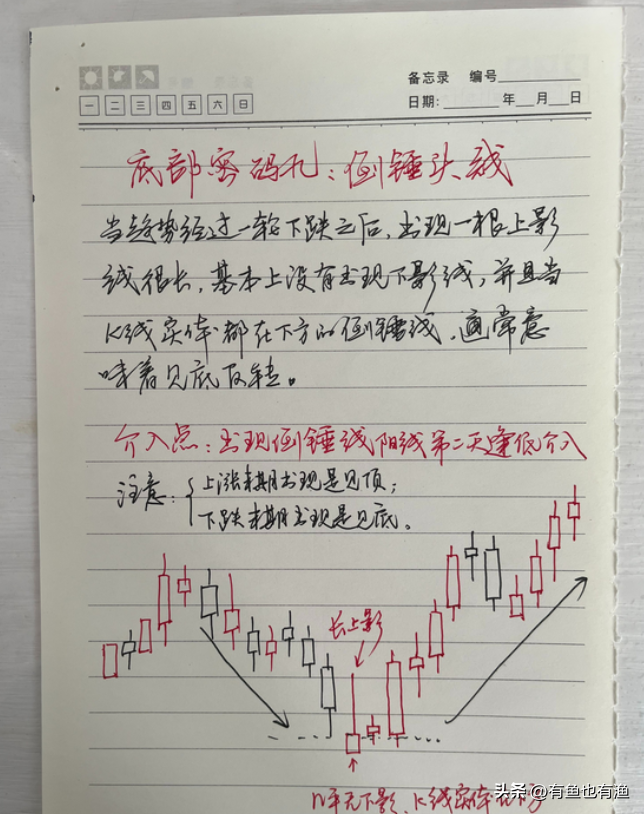 备忘录 编号
一 二 三 四 五 六 日
日期: 年 月 日
底部密码九：倒锤头线
当趋势经过一轮下跌之后，出现一根上影
线很长，基本上没有出现下影线，并且当
K线实体都在下方的倒锤线，通常意
味着见底反转。
介入点：出现倒锤线阳线第二天逢低介入
注意：上涨末期出现是见顶；
下跌末期出现是见底。
长上影
几乎无下影、K线实体在下方
头条 @有鱼也有渔